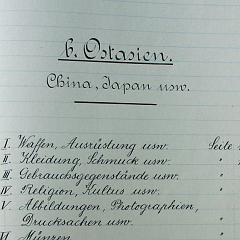 b. Ostasien.
China, Japan usw.
I. Waffen, Ausrüstung usw. Seite
II. Kleidung, Schmuck usw. "
III. Gebrauchsgegenstände usw. "
IV. Religion, Kultus usw. "
V. Abbildungen, Photographien,
Drucksachen usw. "
VI. Münzen